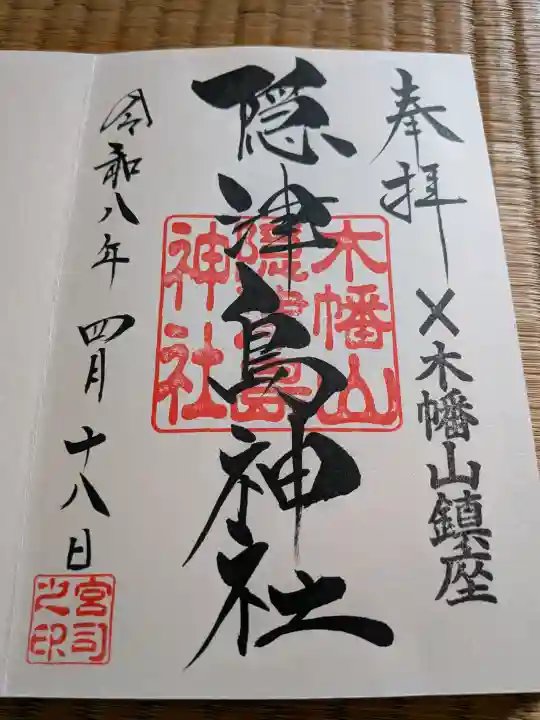 奉拝
×木幡山鎮座
隠津島神社
木幡山
隠津島
神社
令和八年 四月十八日
宮司
之印